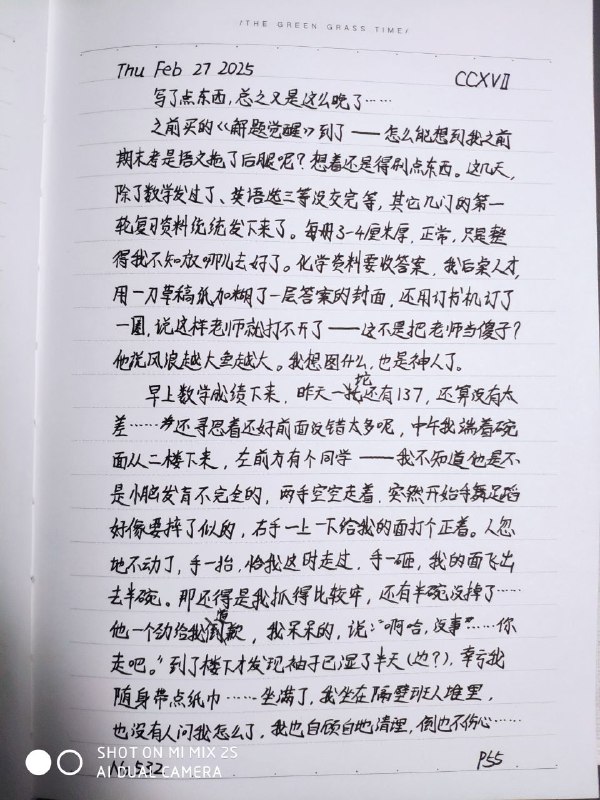 /THE GREEN GRASS TIME/
Thu Feb 27 2025 CCXVII
写了点东西,总之又是这么晚了……
之前买的《解题觉醒》到了——怎么能想到我之前
期末考是语文拖了后腿呢?想着还是得刷点东西。这几天,
除了数学发过了、英语选三等没交完等,其它几门的第一
轮复习资料统统发下来了。每册3-4厘米厚,正常,只是整
得我不知放哪儿去好了。化学资料要收答案,我后桌人才,
用一刀草稿纸加糊了一层答案的封面,还用订书机订了
一圈,说这样老师就打不开了——这不是把老师当傻子?
他说风浪越大鱼越大。我想图什么,也是神人了。
早上数学成绩下来,昨天一坨还有137,还算没有太
差……还寻思着还好前面没错太多呢,中午我端着碗
面从二楼下来,左前方有个同学——我不知道他是不
是小脑发育不完全的,两手空空走着,突然开始手舞足蹈
好像要摔了似的,右手一上一下给我的面打个正着。人忽
地不动了,手一抬,恰我这时走过,手一砸,我的面飞出
去半碗。那还得是我抓得比较牢,还有半碗没掉了……
他一个劲给我道歉,我呆呆的,说:“啊哈,没事”……你
走吧。”到了楼下才发现袖子已湿了半天(边?),幸亏我
随身带点纸巾……坐满了,我坐在隔壁班人堆里,
也没有人问我怎么了,我也自顾自地清理,倒也不伤心……
No.532 P55
SHOT ON MI MIX 2S
AI DUAL CAMERA